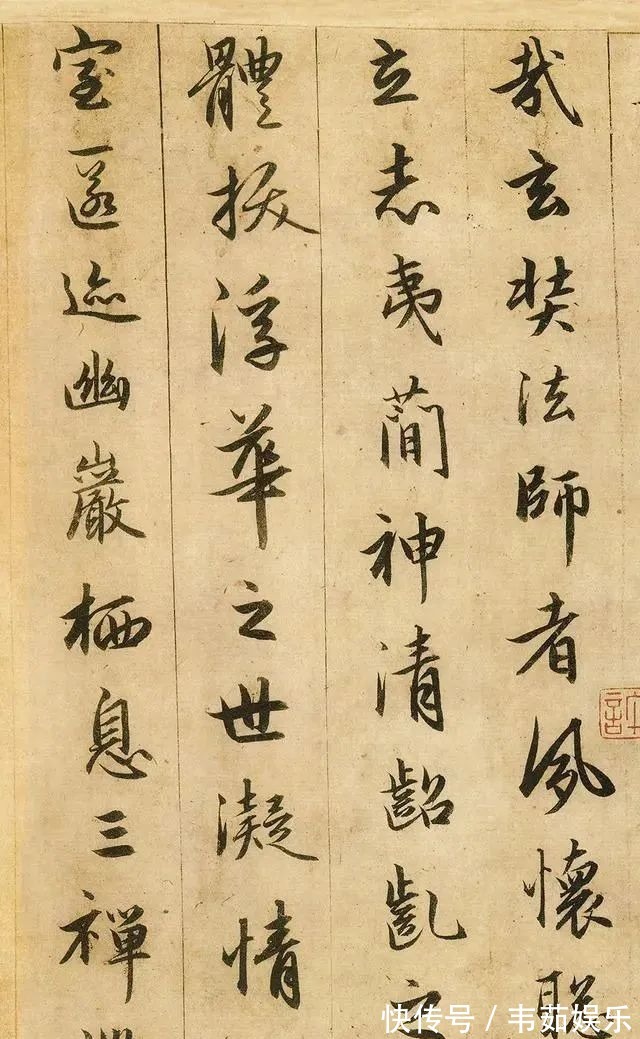 哉玄奘法師者夙懷聡
立志夷簡神清齠齔之
體拔浮華之世凝情
室匿迹幽巖栖息三禪
快传号 / 韦茹娱乐